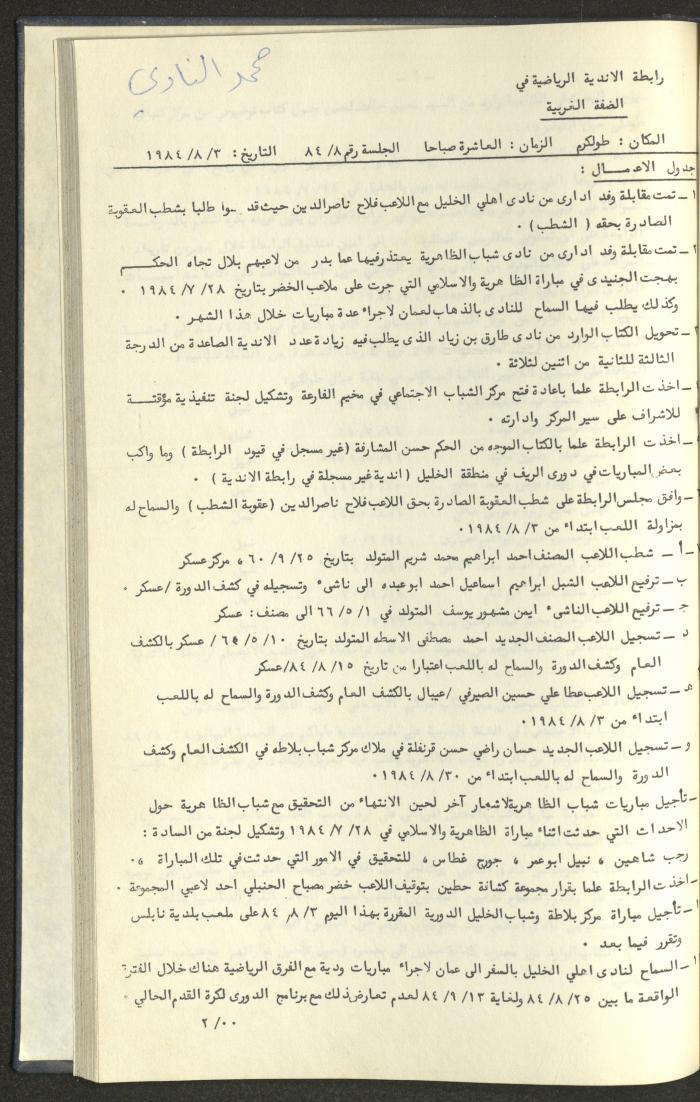 محمد النادي
رابطة الاندية الرياضية في
الضفة الغربية
المكان : طولكرم الزمان : العاشرة صباحا الجلسة رقم ٨٤/٨ التاريخ : ١٩٨٤/٨/٣
جدول الاعمــال :
١ ـ تمت مقابلة وفد ادارى من نادى اهلي الخليل مع اللاعب فلاح ناصر الدين حيث قد ـوا طلبا بشطب العقوبة
الصادرة بحقه ( الشطب ) ٠
٢ ـ تمت مقابلة وفد ادارى من نادى شباب الظاهرية يعتذر فيها عما بدر من لاعبهم بلال تجاه الحكـــم
بهجت الجنيدى في مباراة الظاهرية والاسلامي التي جرت على ملاعب الخضر بتاريخ ١٩٨٤/٧/٢٨ ٠
وكذلك يطلب فيها السماح للنادى بالذهاب لعمان لاجراء عدة مباريات خلال هذا الشهر ٠
ـ تحويل الكتاب الوارد من نادى طارق بن زياد الذى يطلب فيه زيادة عدد الاندية الصاعدة من الدرجة
الثالثة للثانية من اثنين لثلاثة ٠
ـ اخذت الرابطة علما باعادة فتح مركز الشباب الاجتماعي في مخيم الفارعة وتشكيل لجنة تنفيذية مؤقتــة
للاشراف على سير المركز وادارته ٠
ـ اخذت الرابطة علما بالكتاب الموجه من الحكم حسن المشارفة (غير مسجل في قيود الرابطة ) وما واكب
بعض المباريات في دورى الريف في منطقة الخليل ( اندية غير مسجلة في رابطة الاندية ) ٠
ـ وافق مجلس الرابطة على شطب العقوبة الصادرة بحق اللاعب فلاح ناصر الدين (عقوبة الشطب ) والسماح له
بمزاولة اللعب ابتداء من ١٩٨٤/٨/٣٠
ـ أ ـ شطب اللاعب المصنف احمد ابراهيم محمد شريم المتولد بتاريخ ٦٠/٩/٢٥ ، مركز عسكر
ب ـ ترفيع اللاعب الشبل ابراهيم اسماعيل احمد ابو عبده الى ناشىء وتسجيله في كشف الدورة /عسكر ٠
جـ ـ ترفيع اللاعب الناشىء ايمن مشهور يوسف المتولد في ٦٦/٥/١ الى مصنف : عسكر
د ـ تسجيل اللاعب المصنف الجديد احمد مصطفى الاسطه المتولد بتاريخ ٥/١٠/ / عسكر بالكشف
العام وكشف الدورة والسماح له باللعب اعتبارا من تاريخ ٨٤/٨/١٥/عسكر
هـ ـ تسجيل اللاعب عطا علي حسين الصيرفي /عيبال بالكشف العام وكشف الدورة والسماح له باللعب
ابتداء من ١٩٨٤/٨/٣٠
و ـ تسجيل اللاعب الجديد حسان راضي حسن قرنفلة في ملاك مركز شباب بلاطه في الكشف العام وكشف
الدورة والسماح له باللعب ابتداء من ١٩٨٤/٨/٣٠٠
ـ تأجيل مباريات شباب الظاهرية لاشعار آخر لحين الانتهاء من التحقيق مع شباب الظاهرية حول
الاحداث التي حدثت اثناء مباراة الظاهرية والاسلامي في ١٩٨٤/٧/٢٨ وتشكيل لجنة من السادة :
رجب شاهين ، نبيل ابو عمر ، جورج غطاس ، للتحقيق في الامور التي حدثت في تلك المباراة ،٠
ـ اخذت الرابطة علما بقرار مجموعة كشافة حطين بتوقيف اللاعب خضر مصباح الحنبلي احد لاعبي المجموعة ٠
١ ـ تأجيل مباراة مركز بلاطة وشباب الخليل الدورية المقررة بهذا اليوم ٨٤/٨/٣ على ملعب بلدية نابلس
وتقرر فيما بعد ٠
١ ـ السماح لنادى اهلي الخليل بالسفر الى عمان لاجراء مباريات ودية مع الفرق الرياضية هناك خلال الفترة
الواقعة ما بين ٨٤/٨/٢٥ ولغاية ٨٤/٩/١٣ لعدم تعارض ذلك مع برنامج الدورى لكرة القدم الحالي ٠
٢/٠٠